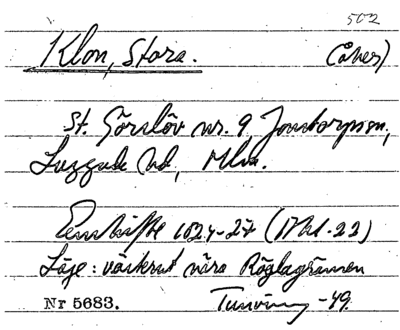 502
Klon, Stora. (åker)
St. Görslöv nr. 9, Jonstorpssn,
Luggude hd, Mlm.
Enskifte 1824-27 (
Läge: västerut nära Röglagränsen
Nr 5683. Tunving -49.